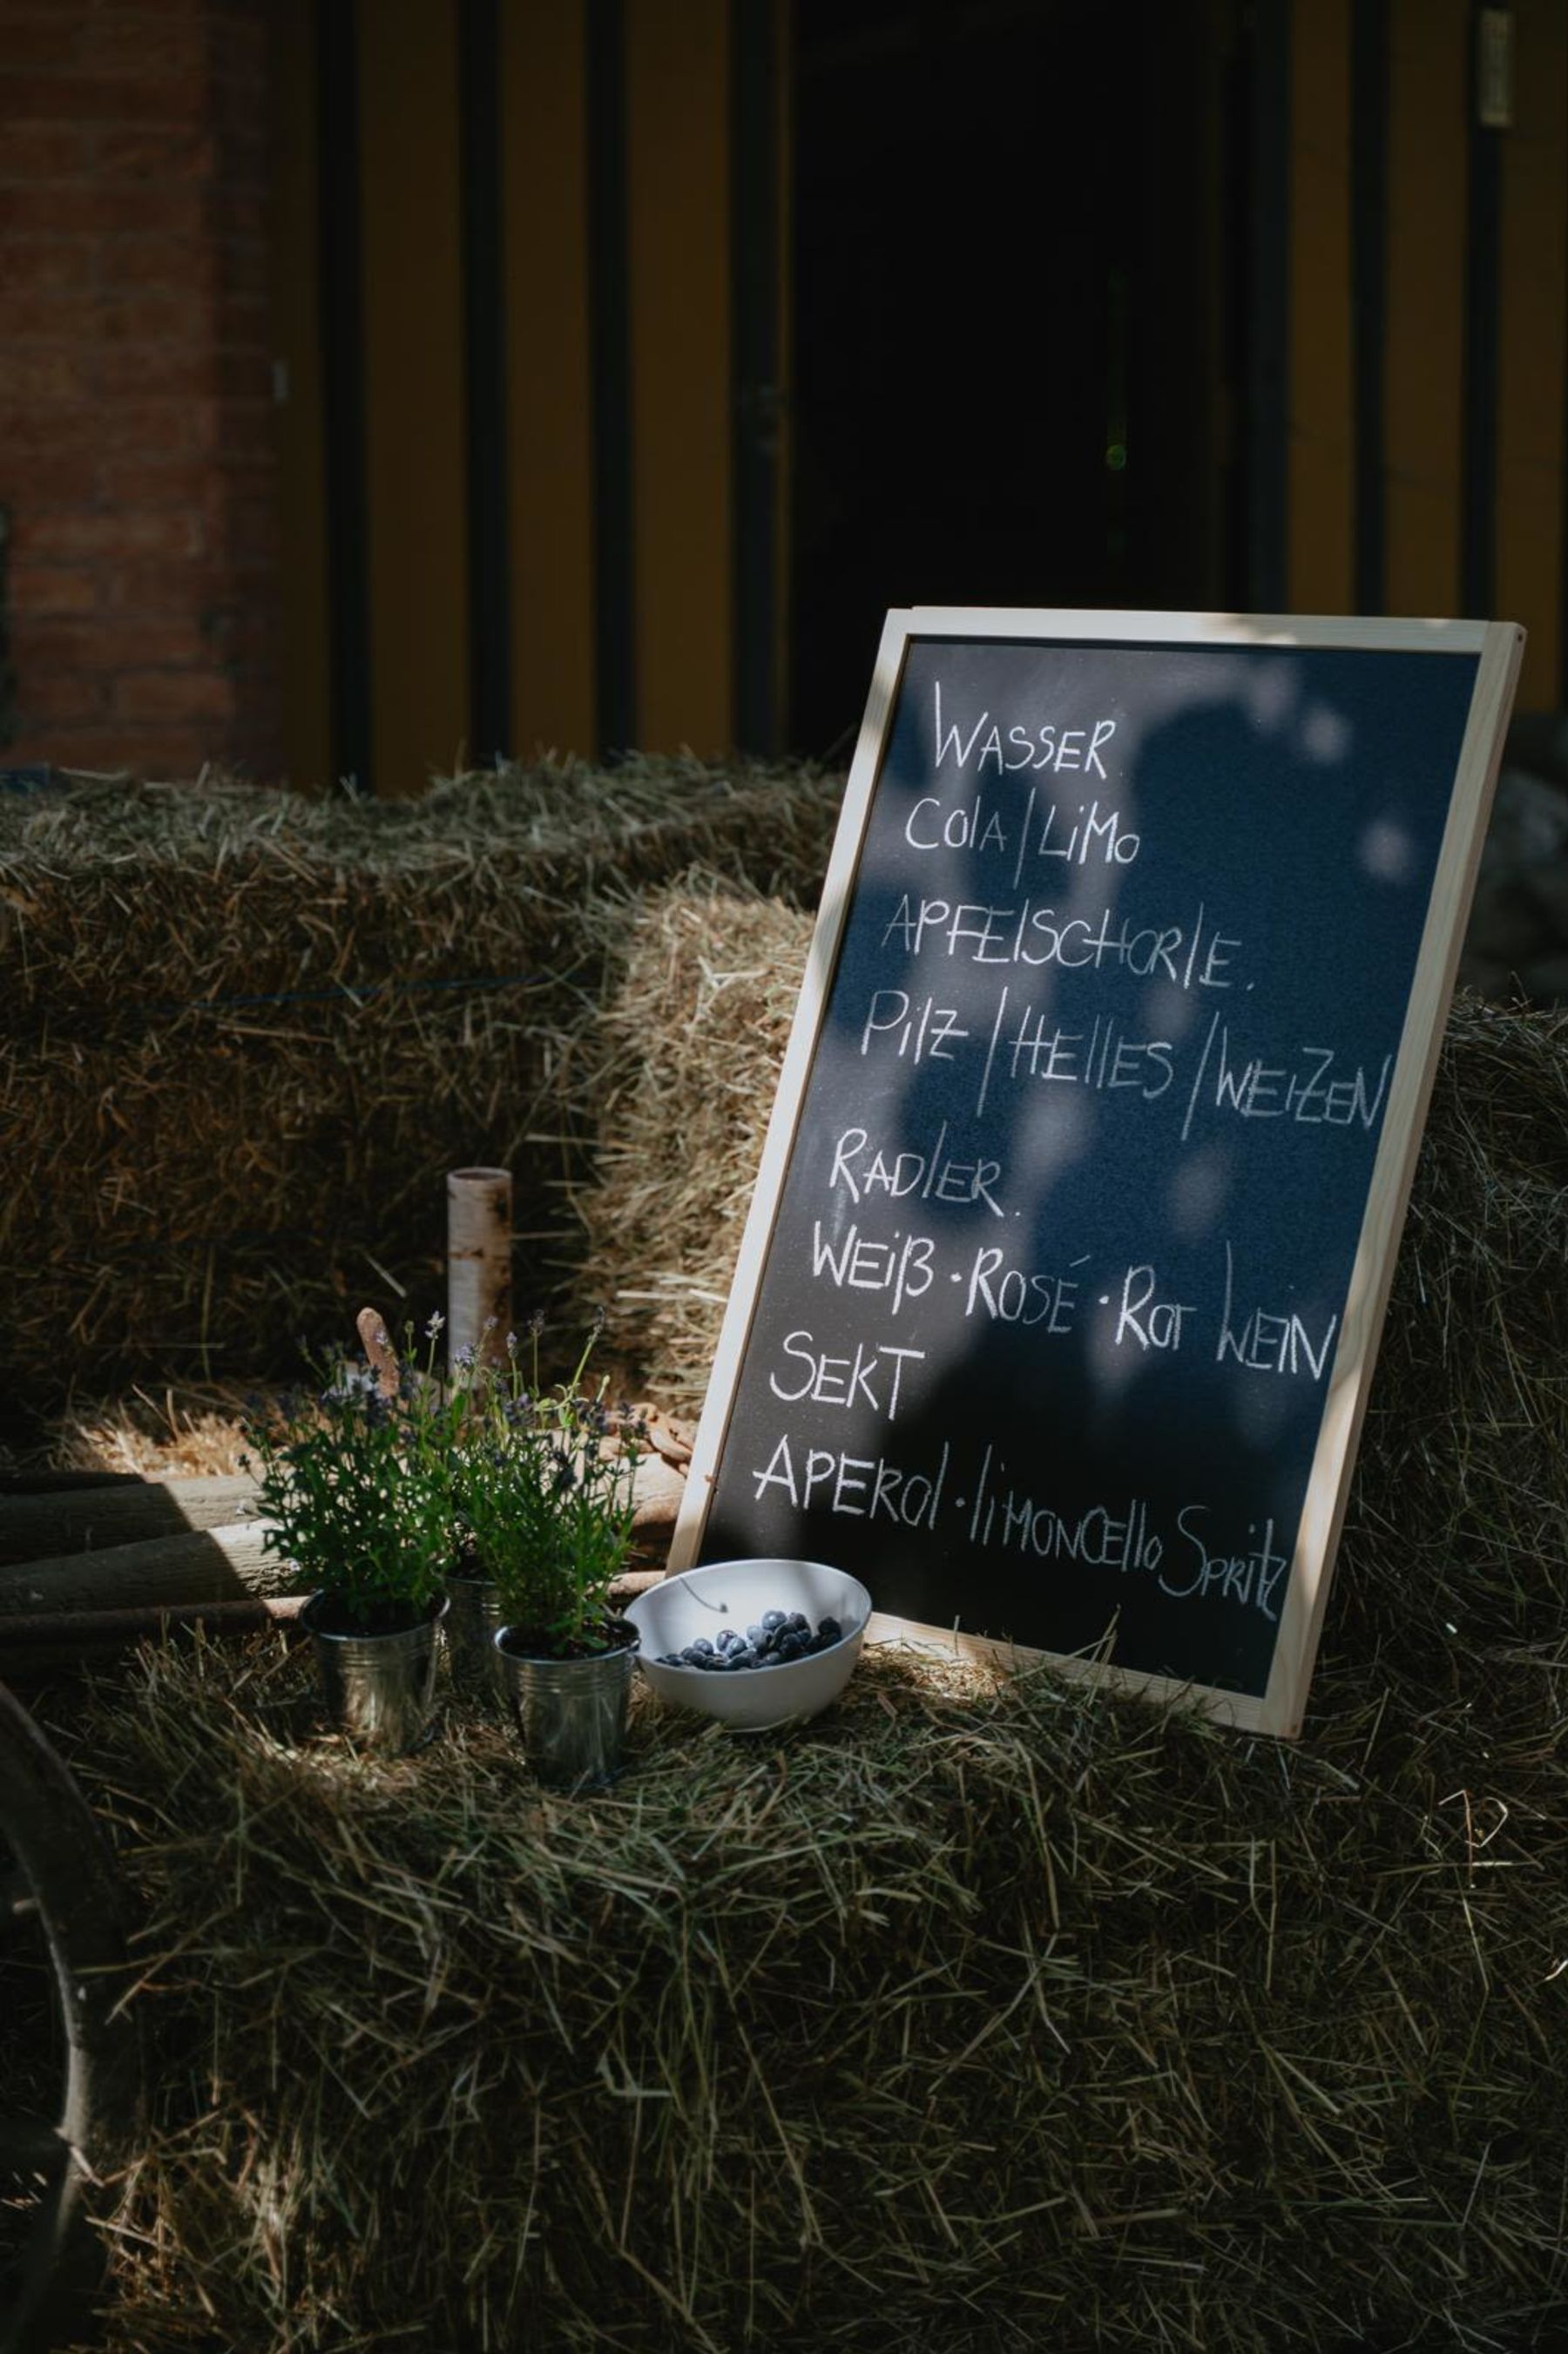 WASSER
Cola/LiMo
APFElSCHORlE.
Pilz/HEllES/WEiZEN
RADlER.
WEiß·ROSÉ·Rot WEIN
SEKT
APERol·liMONCEllo SpRitz